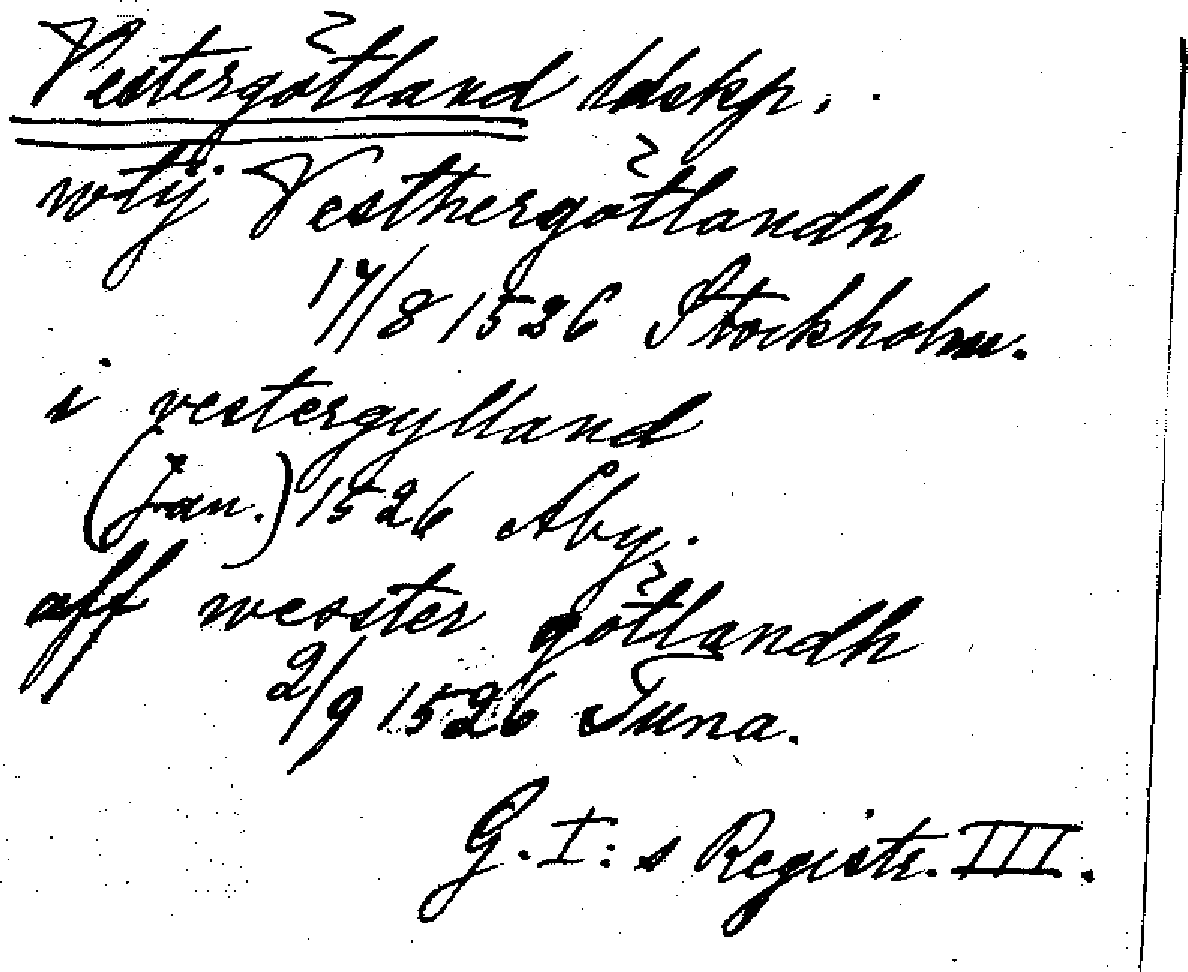 Vestergötland ldskp.
wtij Vesthergötlandh
17/8 1526 Stockholm.
i vestergylland
(Jan.) 1526 Aby.
aff wesster götlandh
2/9 1526 Tuna.
G. I:s Registr. III.